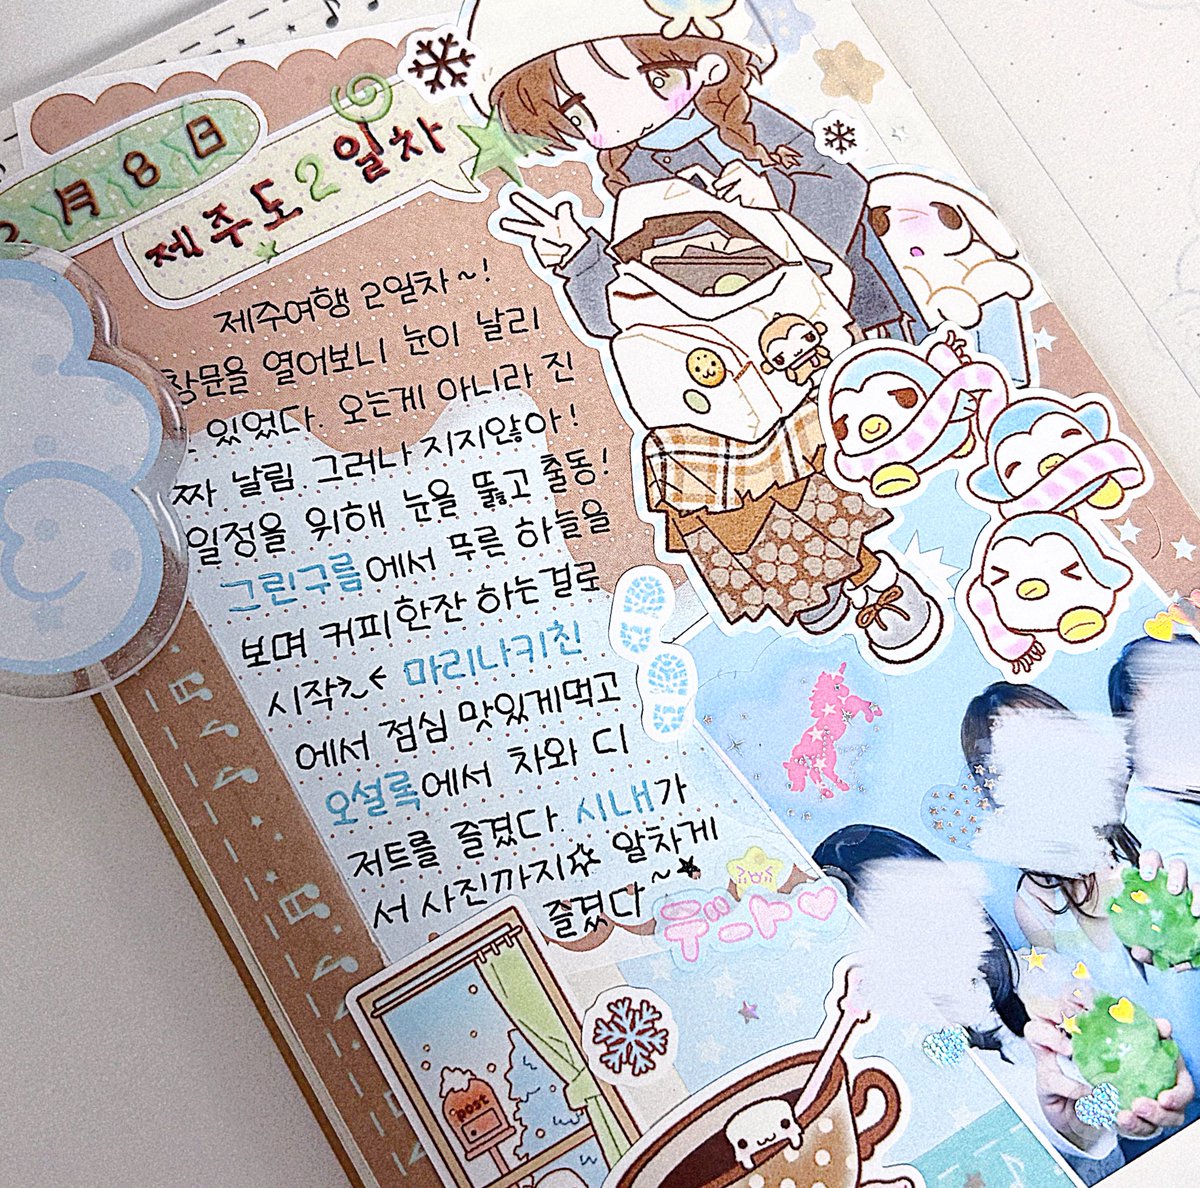 月8日
제주도2일차
제주여행 2일차~!
창문을 열어보니 눈이 날리
있었다. 오는게 아니라 진
짜 날림. 그러나 지지않아!
일정을 위해 눈을 뚫고 출동!
그린구름에서 푸른 하늘을
보며 커피한잔 하는걸로
시작>.< 마리나키친
에서 점심 맛있게먹고
오설록에서 차와 디
저트를 즐겼다. 시내가
서 사진까지☆ 알차게
즐겼다~★
デート♡
post